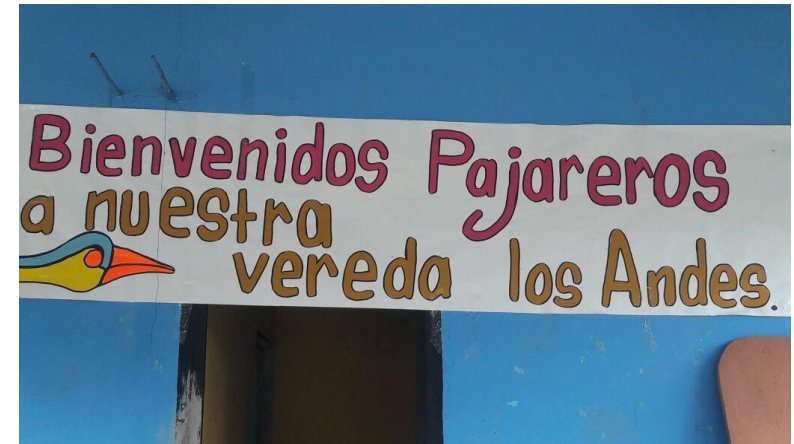 Bienvenidos Pajareros
a nuestra
vereda los Andes.